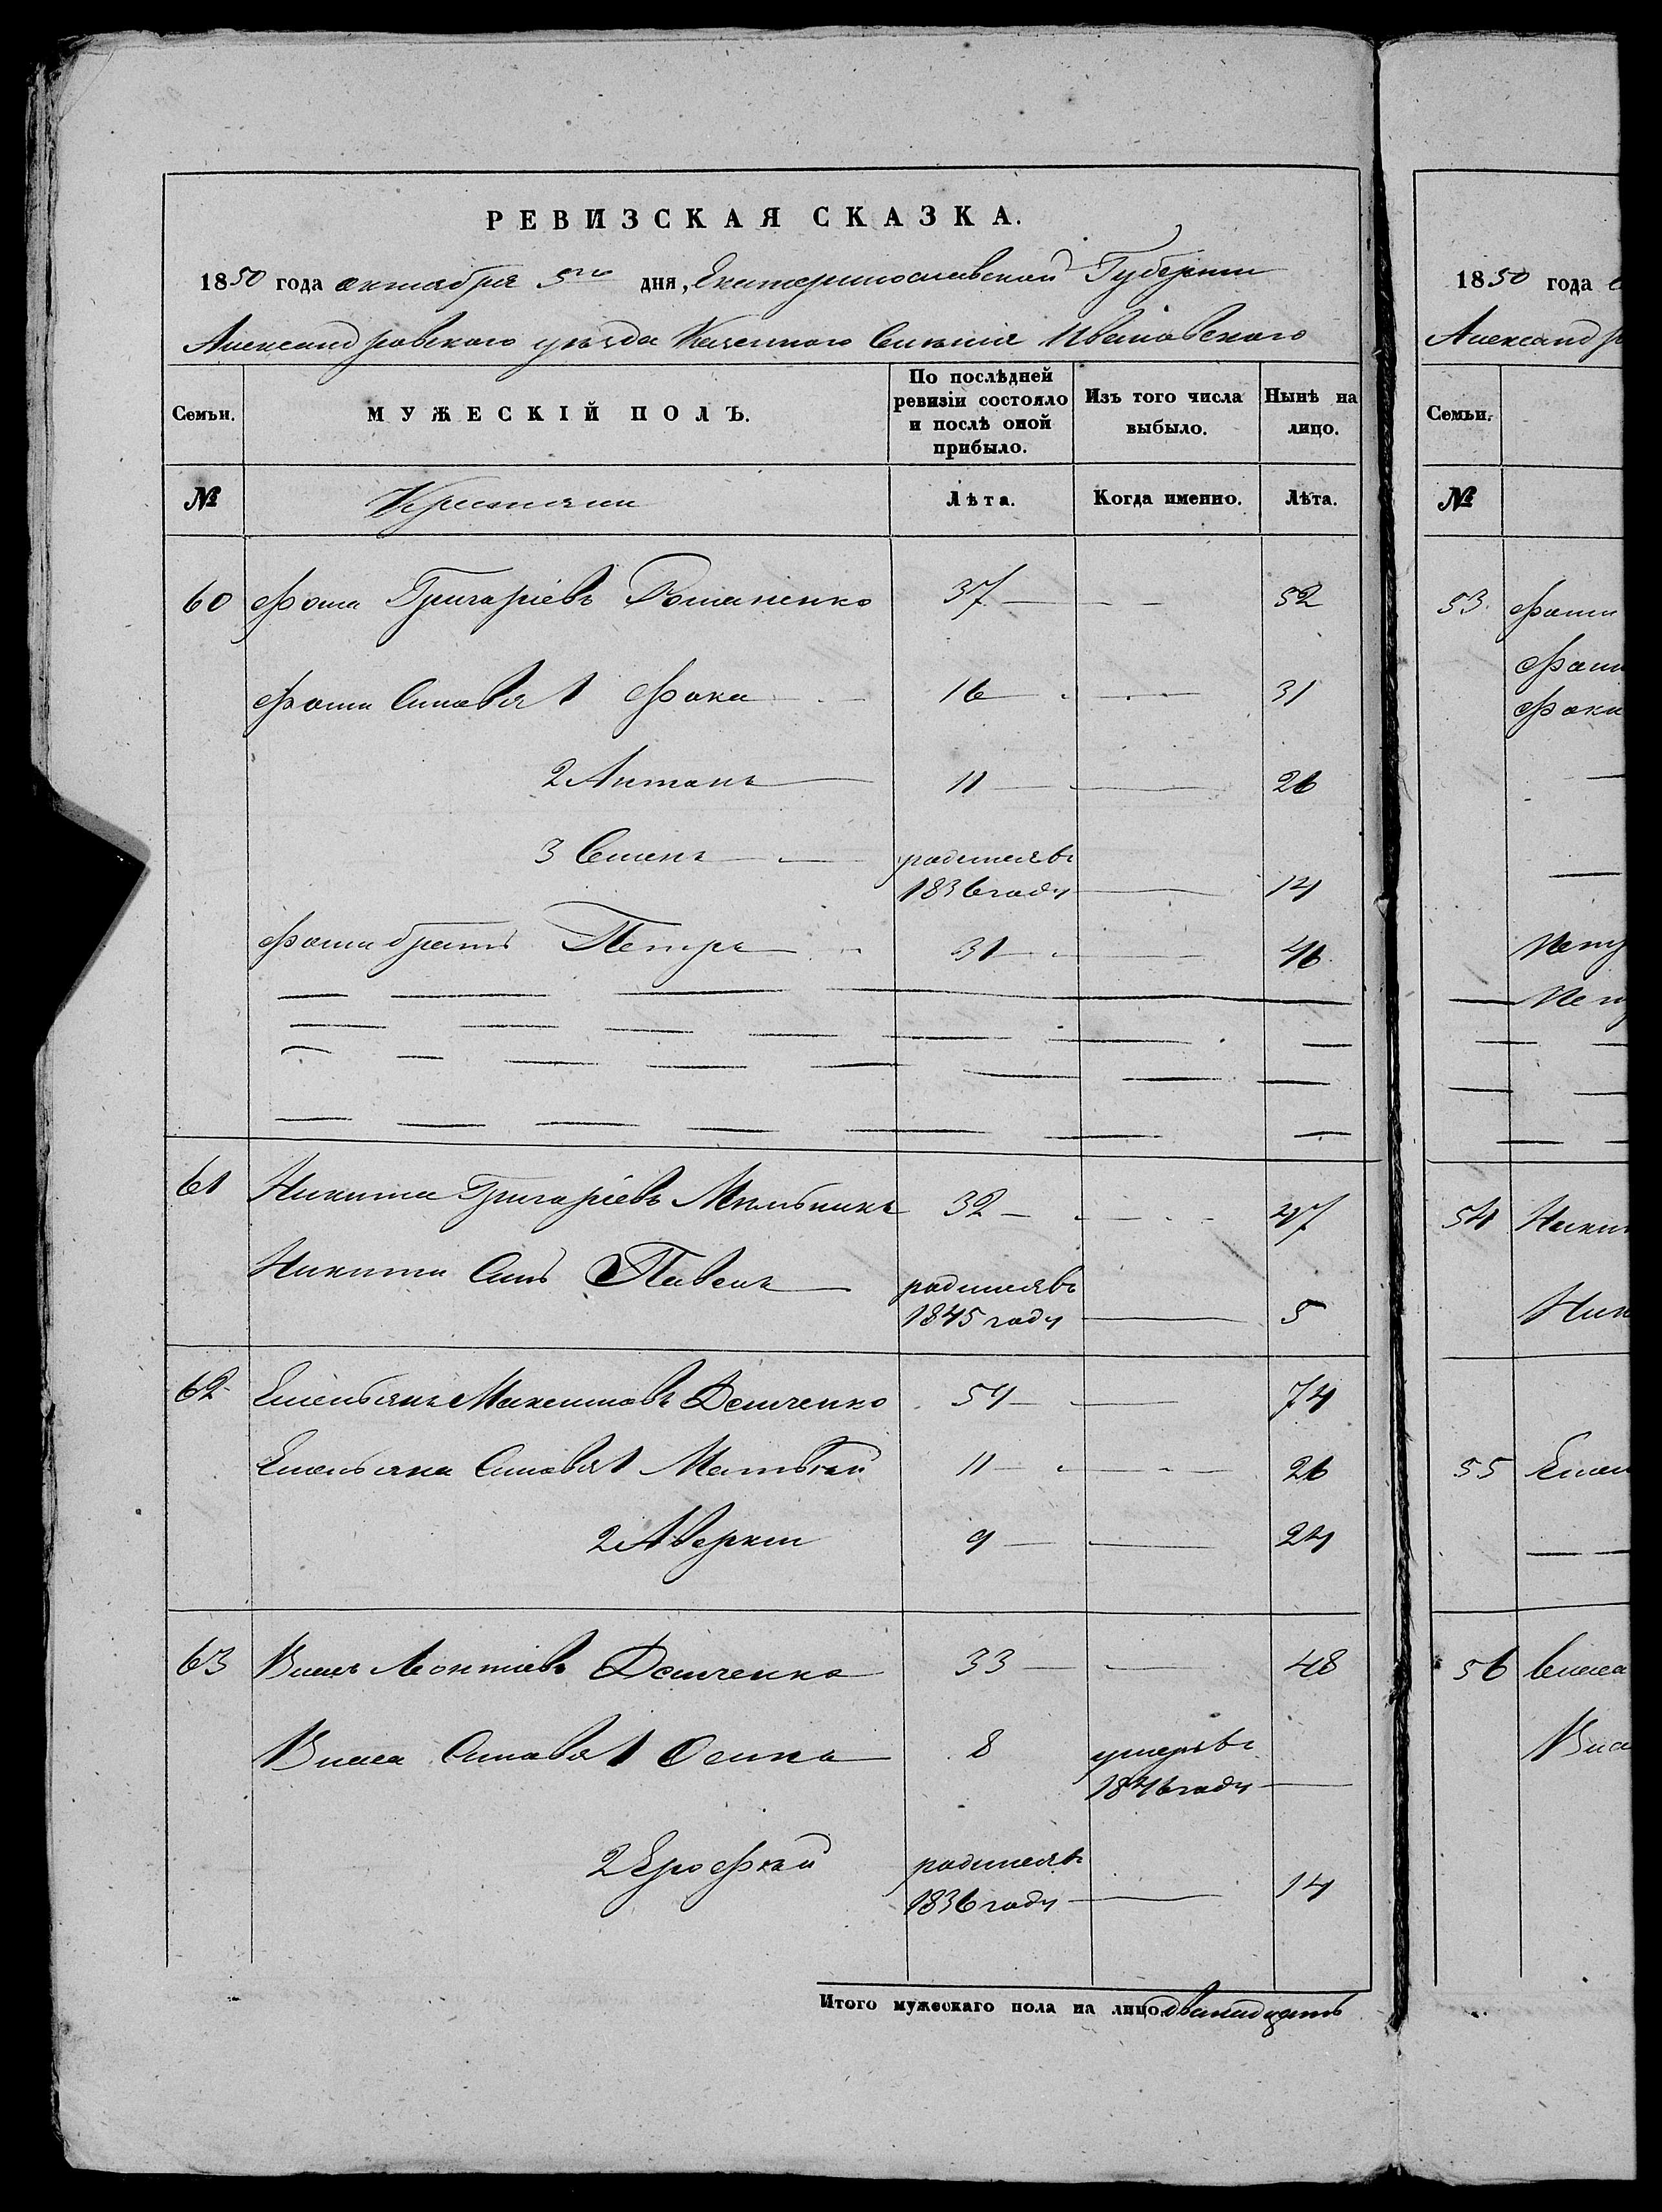 РЕВИЗСКАЯ СКАЗКА.
1850 года октября 5го дня, Екатеринославской Губернии
Александровского уезда Казенного Селения Ивановского
Семьи. МУЖЕСКІЙ ПОЛЪ. По послѣдней ревизіи состояло и послѣ оной прибыло. Изъ того числа выбыло. Нынѣ на лицо.
№ Крестяни Лѣта. Когда именно. Лѣта.
60 Фома Григоріевъ Романенко 37 52
Фоми Синовя 1 Фока 16 31
2 Антонъ 11 26
3 Семенъ родился въ
1836 году 14
Фоми братъ Петръ 31 46
61 Никита Григоріевъ Мельникъ 32 47
Никити Синъ Павелъ родился въ
1845 году 5
62 Емельянъ Максимовъ Демченко 59 74
Емельяна Синовя 1 Матвѣй 11 26
2 Аверки 9 24
63 Власъ Леонтіевъ Демченко 33 48
Власа Синовя 1 Осипъ 8 умеръ въ
1846 году
2 Ерофѣй родился въ
1836 году 14
Итого мужескаго пола на лицо двенадцать
1850 года
Александр
Семьи.
№
53 Фоми
Фоми
Фоки
Петр
Петр
54 Ники
Ники
55 Емел
56 Власа
Влас